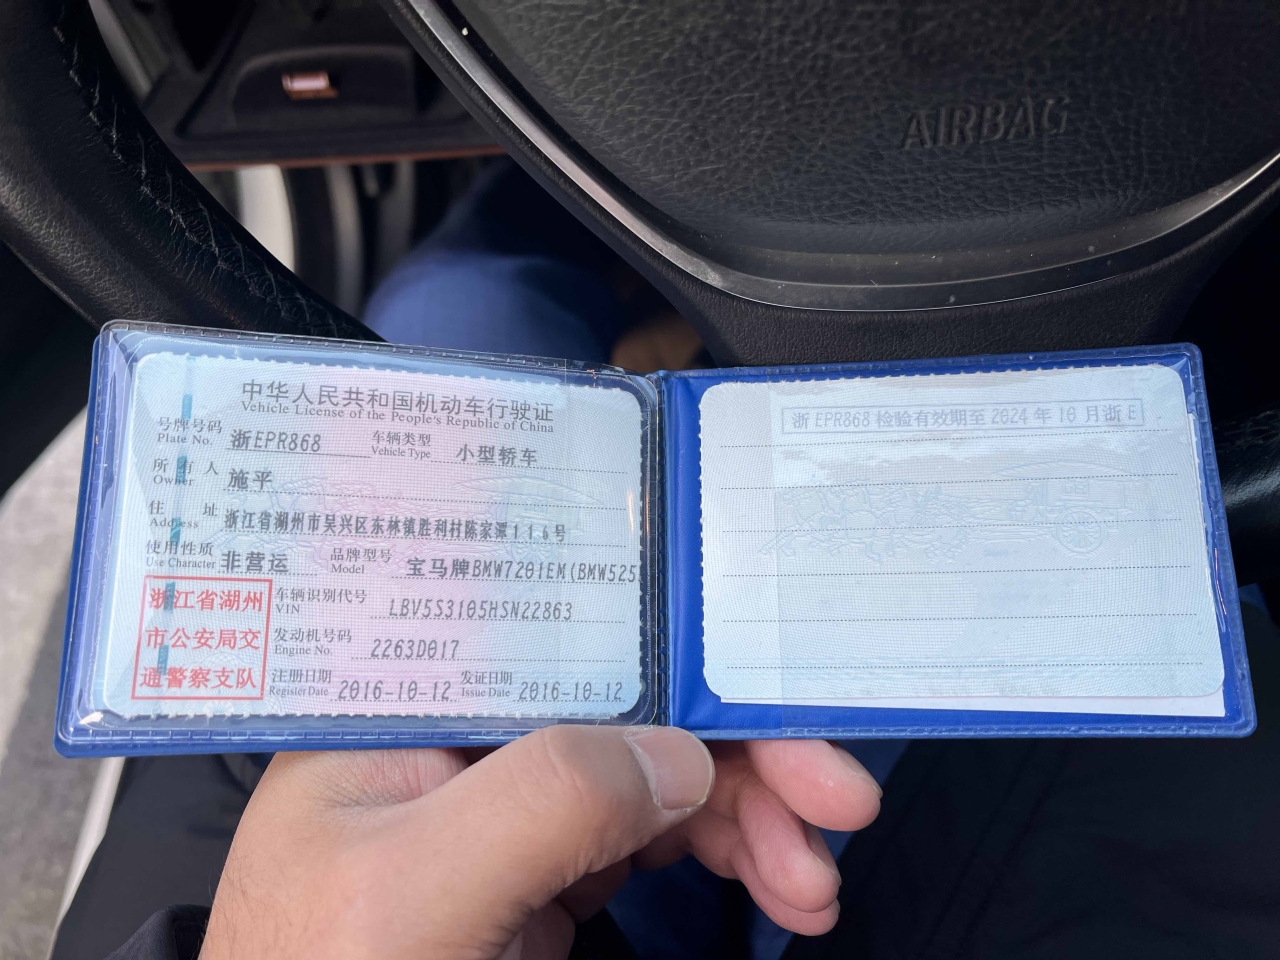 AIRBAG
中华人民共和国机动车行驶证
Vehicle License of the People's Republic of China
号牌号码 浙EPR868 车辆类型 小型轿车
Plate No. Vehicle Type
所有人 施平
Owner
住址 浙江省湖州市吴兴区东林镇胜利村陈家潭116号
Address
使用性质 非营运 品牌型号 宝马牌BMW7201EM(BMW525
Use Character Model
浙江省湖州
市公安局交
通警察支队
车辆识别代号 LBV5S3105HSN22863
VIN
发动机号码 2263D017
Engine No.
注册日期 2016-10-12 发证日期 2016-10-12
Register Date Issue Date
浙EPR868检验有效期至2024年10月浙E